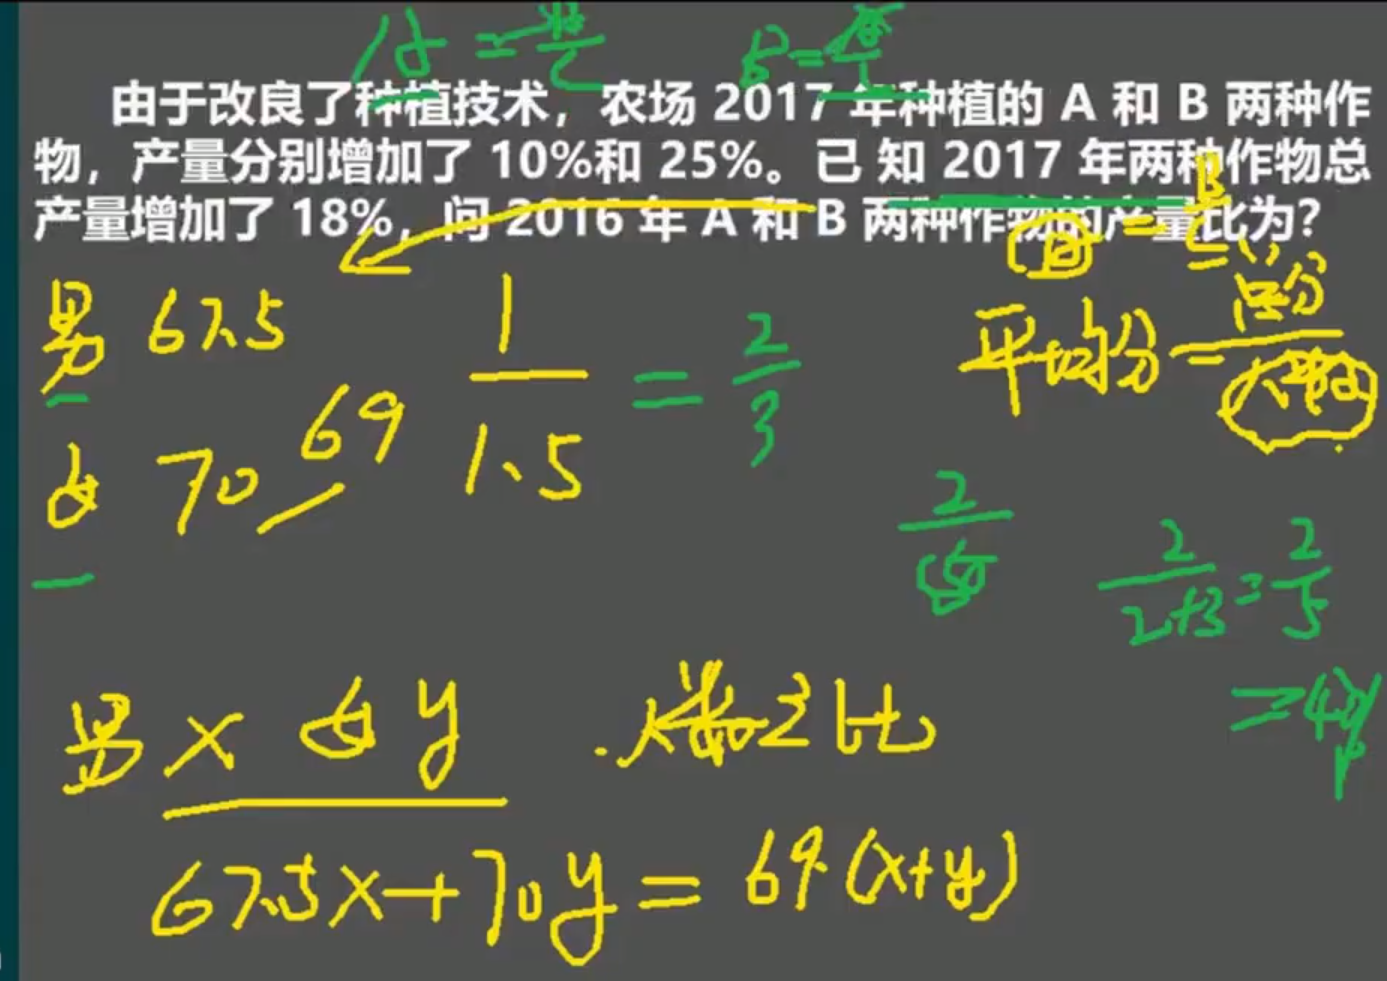 由于改良了种植技术，农场 2017 年种植的 A 和 B 两种作
物，产量分别增加了 10%和 25%。已 知 2017 年两种作物总
产量增加了 18%，问 2016 年 A 和 B 两种作物的产量比为？
男 67.5
女 70 69
1
1.5
= 2
3
平均分 = 总分
人数
2
2
2+3
= 2
5
男 x 女 y 人数之比
67.5x+70y = 69(x+y)